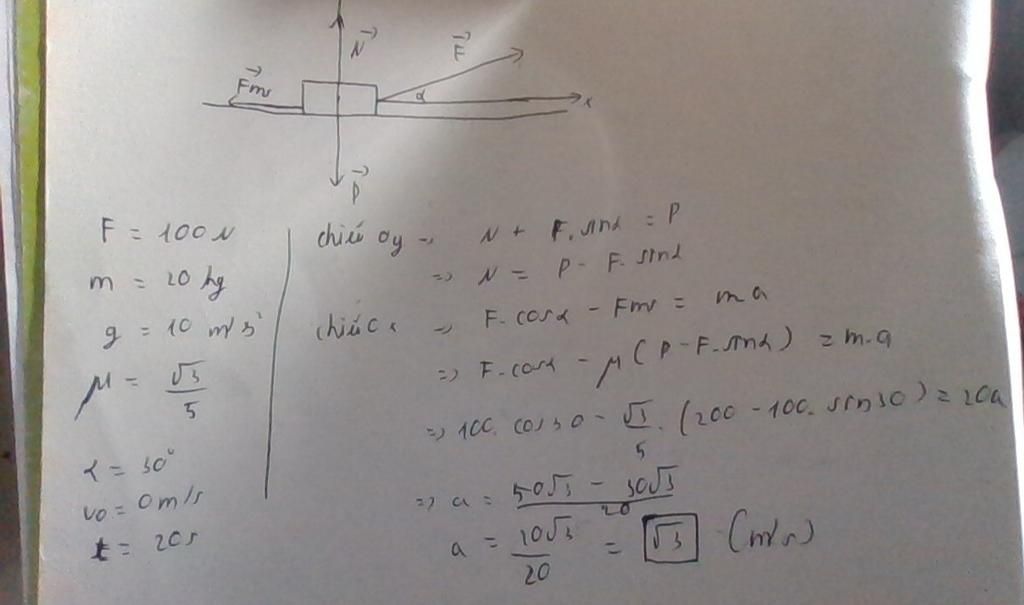 N⃗
F⃗
F⃗ms
α
x
P⃗
F = 100N
m = 20 kg
g = 10 m/s²
μ = √3/5
α = 30°
v₀ = 0m/s
t = 20s
chiếu Oy → N + F.sinα = P
=> N = P - F.sinα
chiếu Ox → F.cosα - Fms = ma
=> F.cosα - μ(P-F.sinα) = m.a
=> 100.cos30 - √3/5.(200-100.sin30) = 20a
=> a = (50√3 - 30√3)/20
a = 10√3/20 = √3 (m/s)